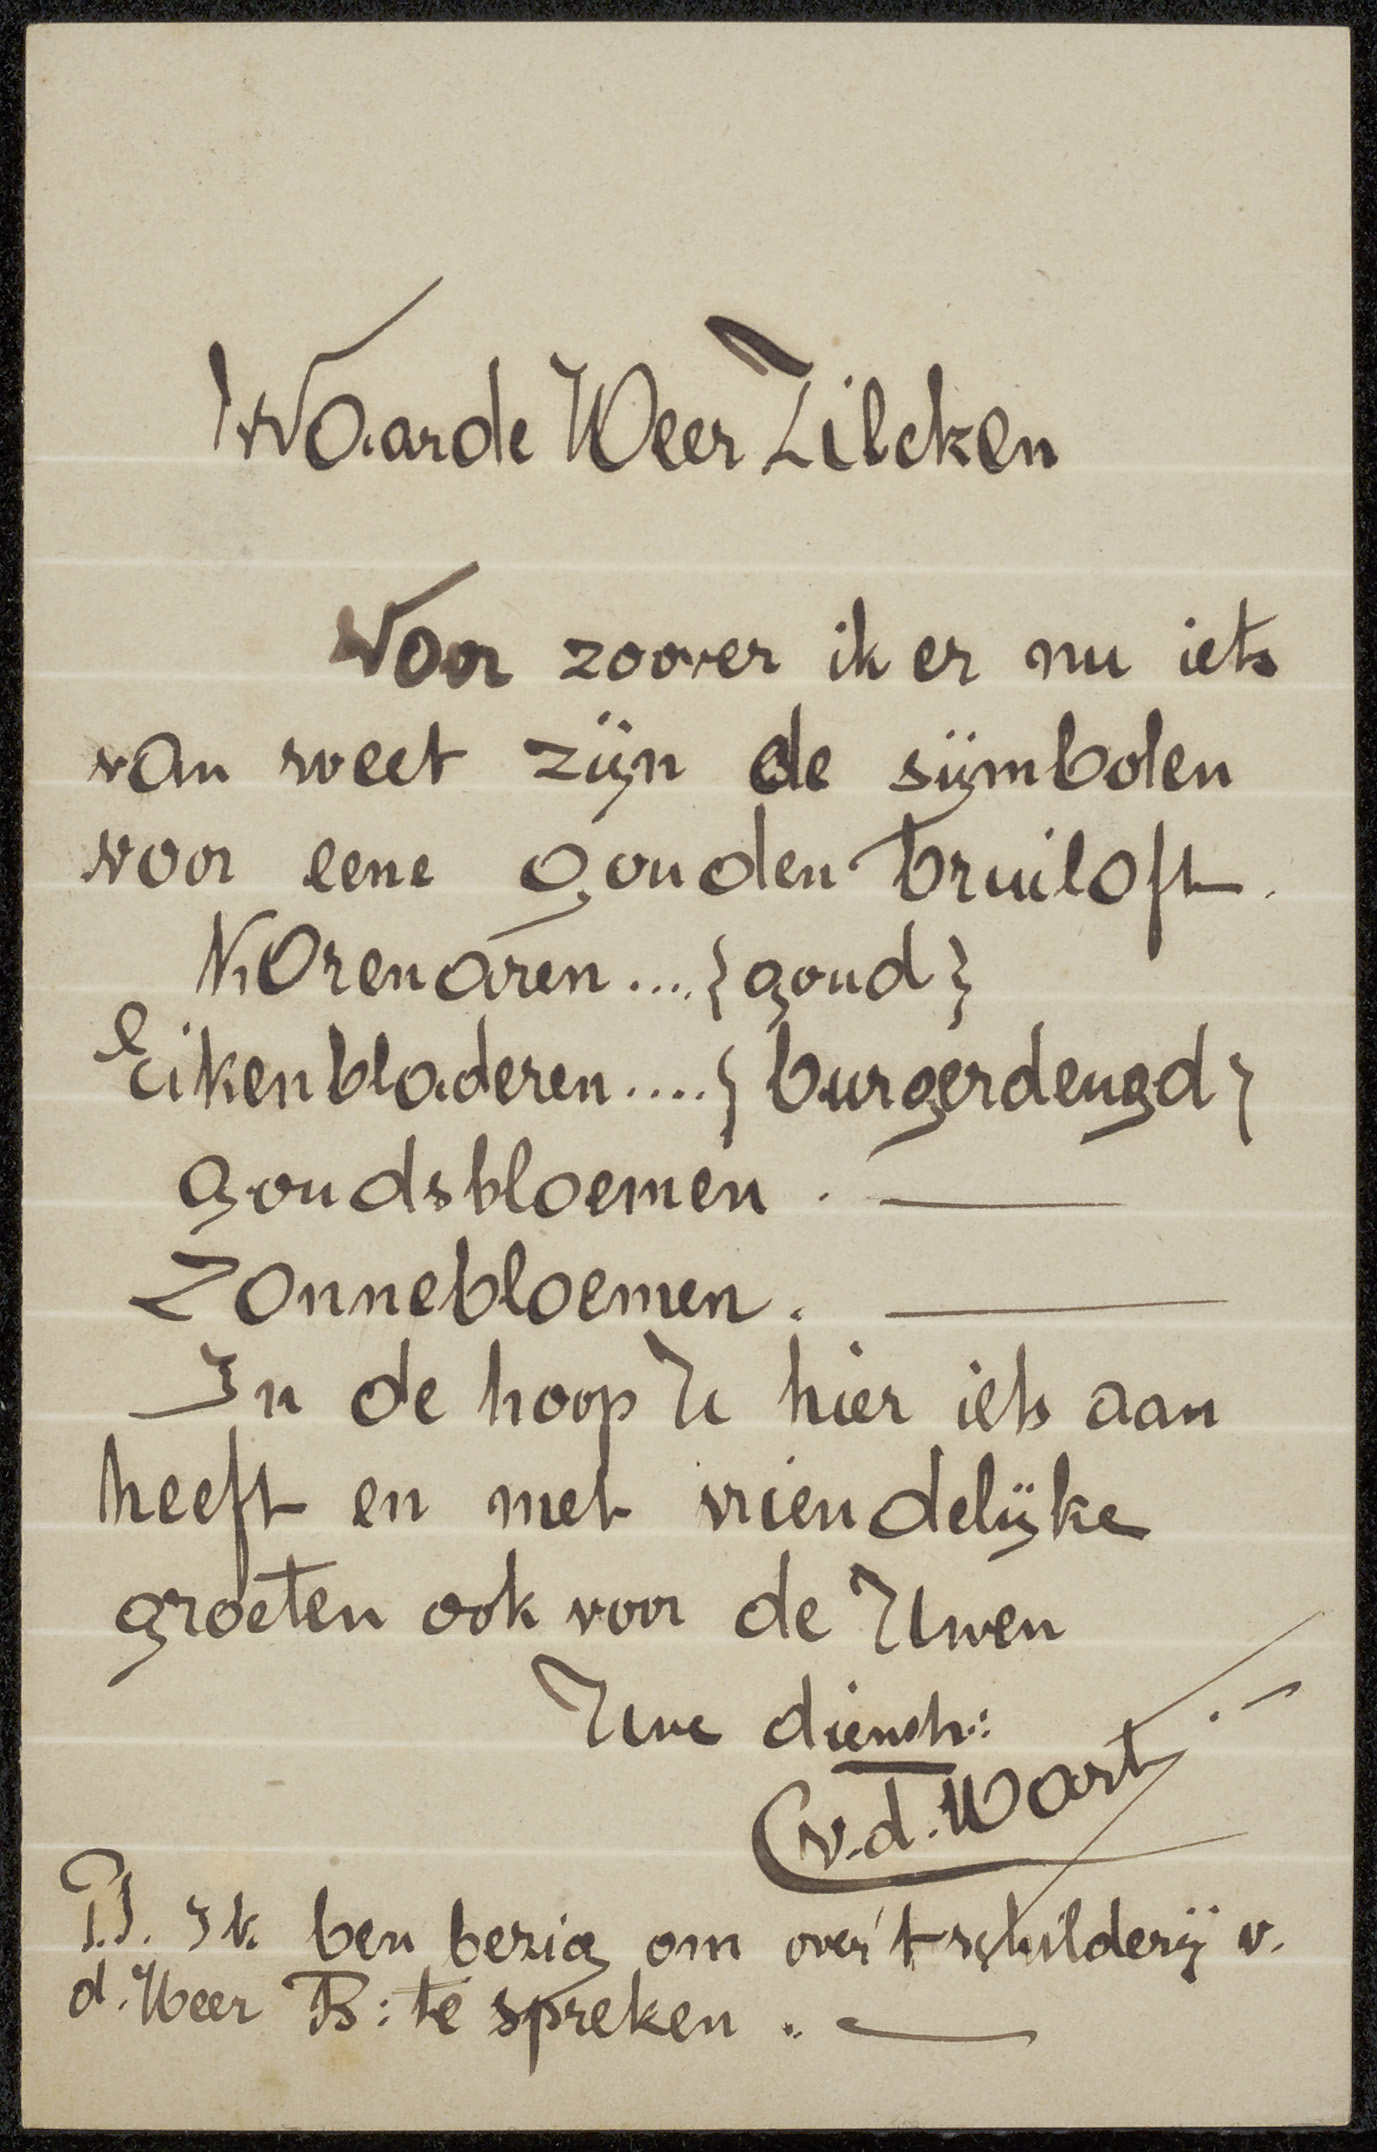 Waarde Heer Zilcken
Voor zoover ik er nu iets
van weet zijn de sijmbolen
voor eene gouden bruiloft.
Korenaren .... {goud}
Eikenbladeren .... {burgerdeugd}
Goudsbloemen . —
Zonnebloemen . —
In de hoop U hier iets aan
heeft en met vriendelijke
groeten ook voor de Uwen
Uwe dienstv:
C v. d. Wart
P.S. Ik ben bezig om over 't schilderij v.
d. Heer B: te spreken . —